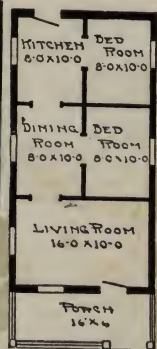 KITCHEN
8-0X10-0
BED
ROOM
8-0X10-0
DINING
ROOM
8-0X10-0
BED
ROOM
8-0X10-0
LIVING ROOM
16-0 X10-0
PORCH
16'X6'